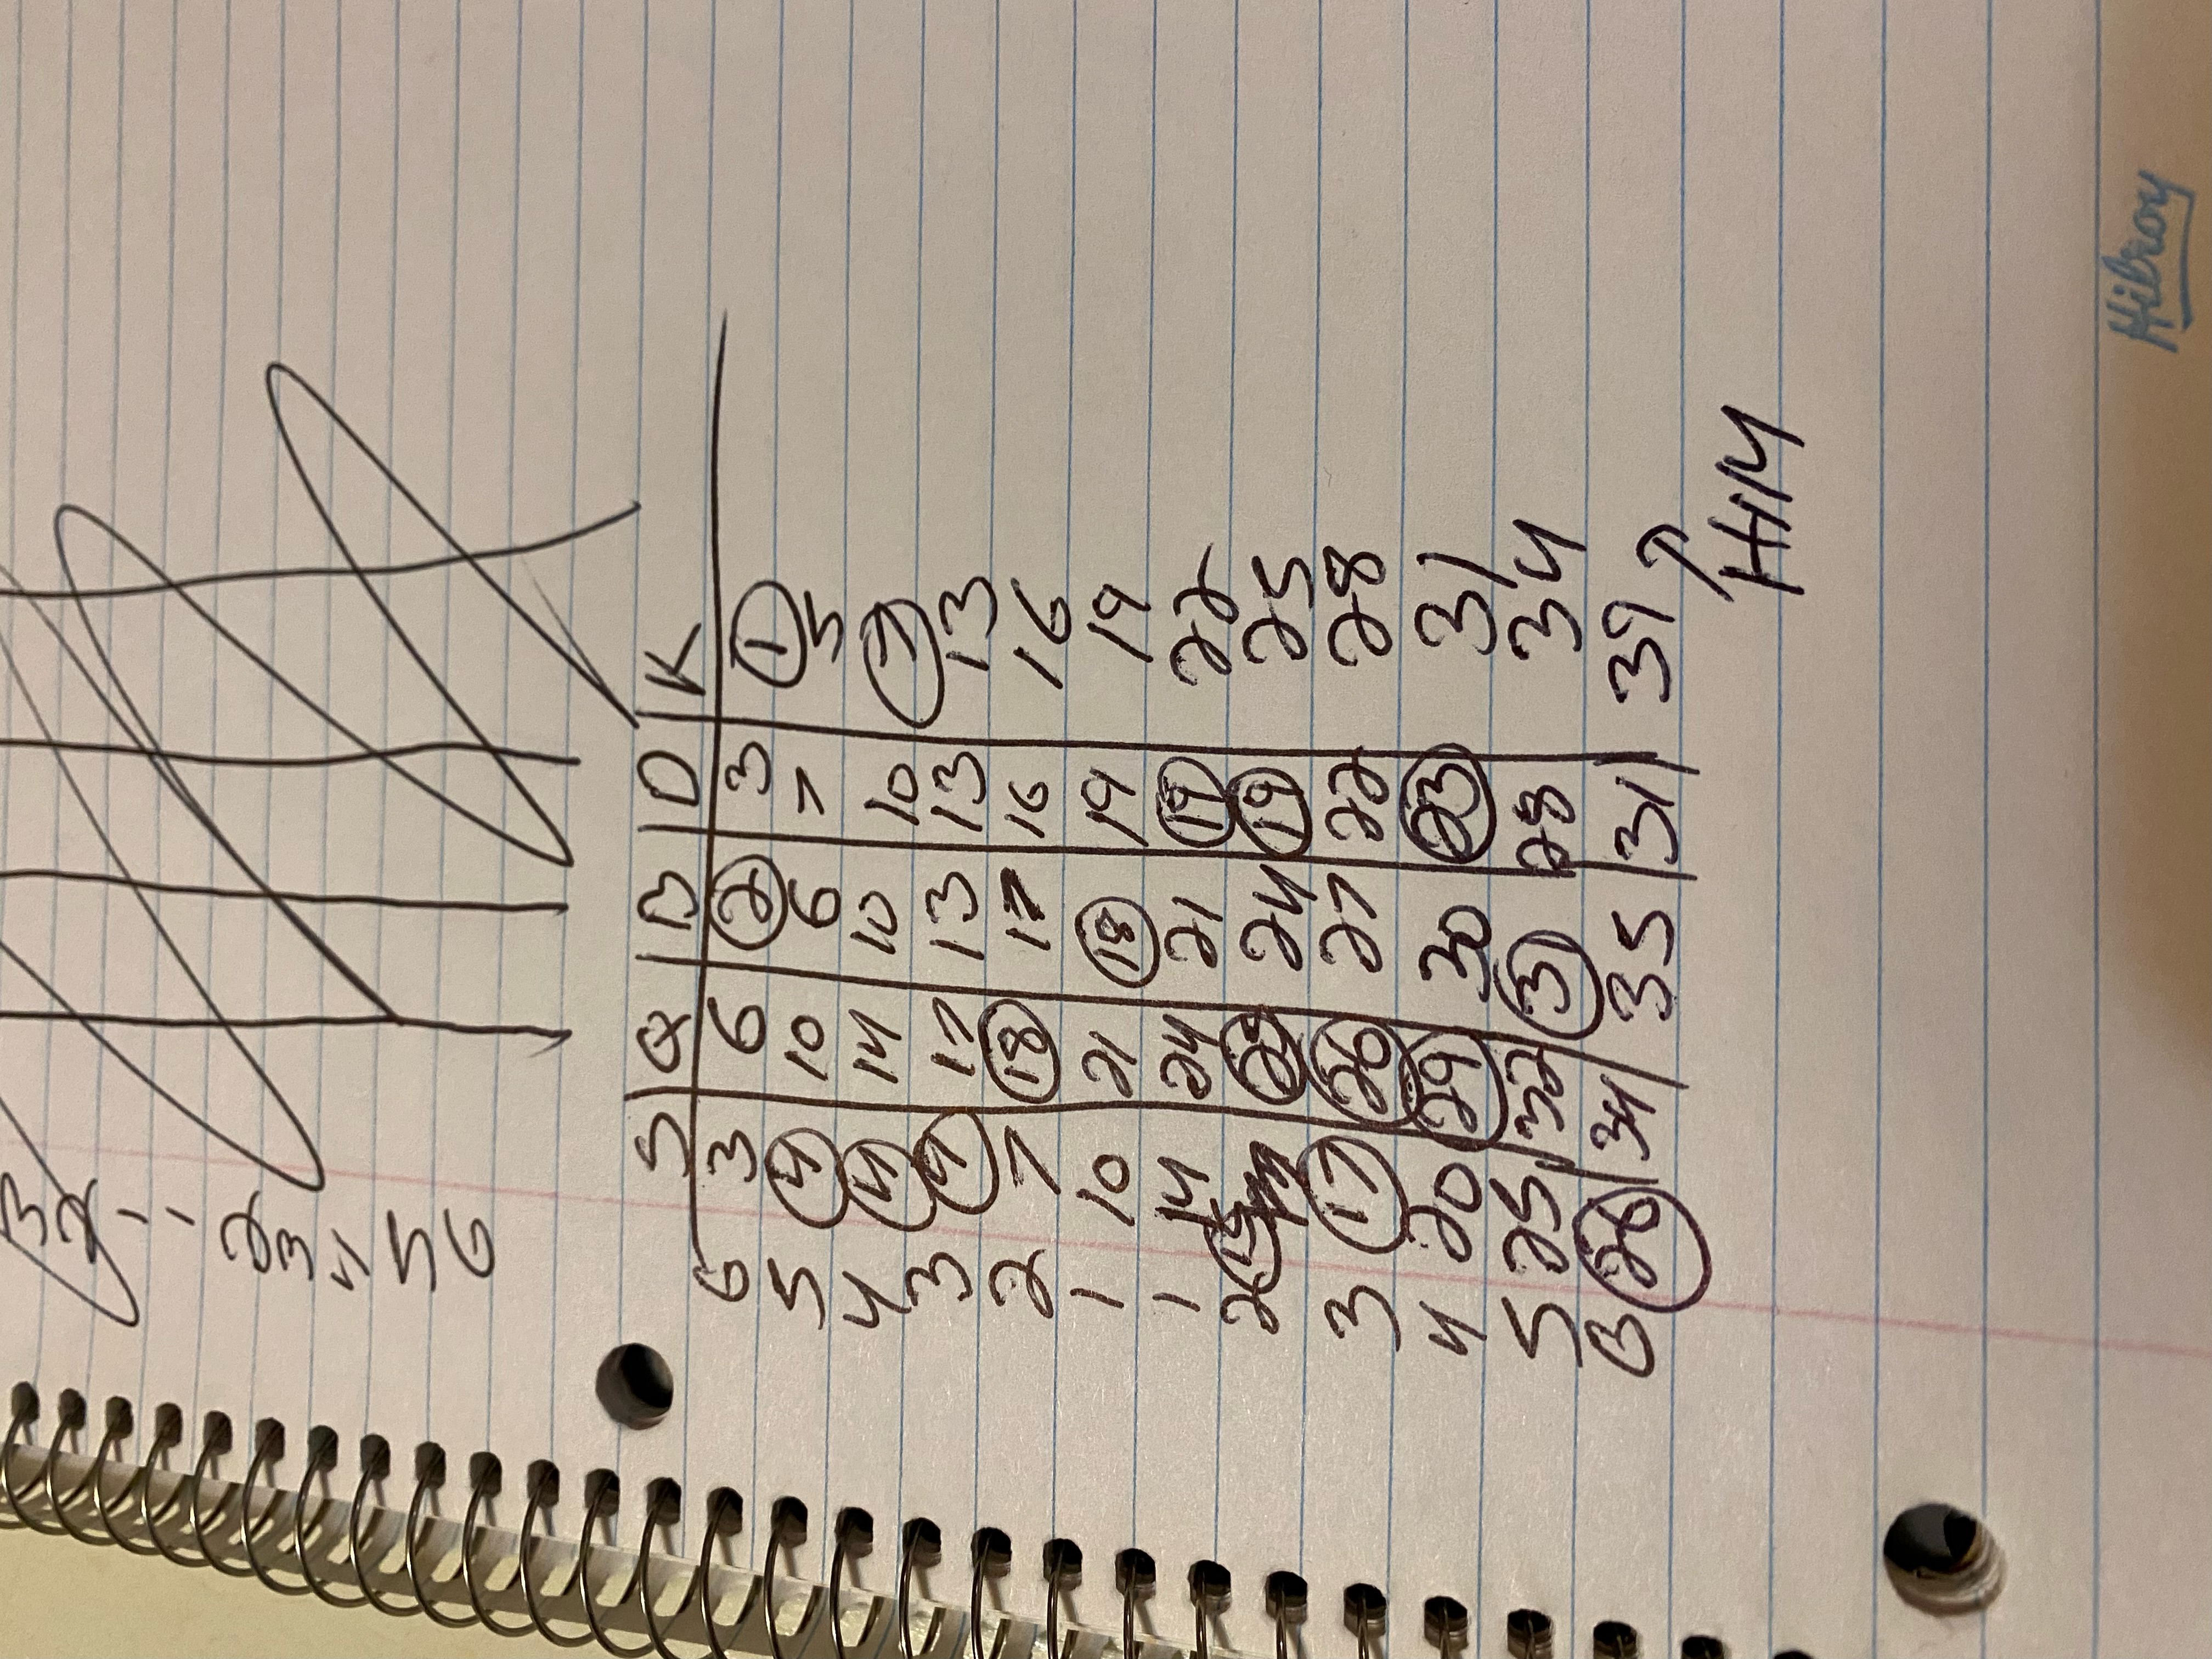 3
2
1
1
2
3
4
5
6
S Q B D K
6 3 6 2 3 1
5 4 10 6 7 5
4 4 14 10 10 7
3 4 17 13 13 13
2 7 18 17 16 16
1 10 21 18 19 19
1 14 24 21 19 22
2 15 25 24 19 25
3 17 26 27 22 28
4 20 29 30 23 31
5 25 32 31 28 34
6 26 34 35 31 39
HIM
Hilroy